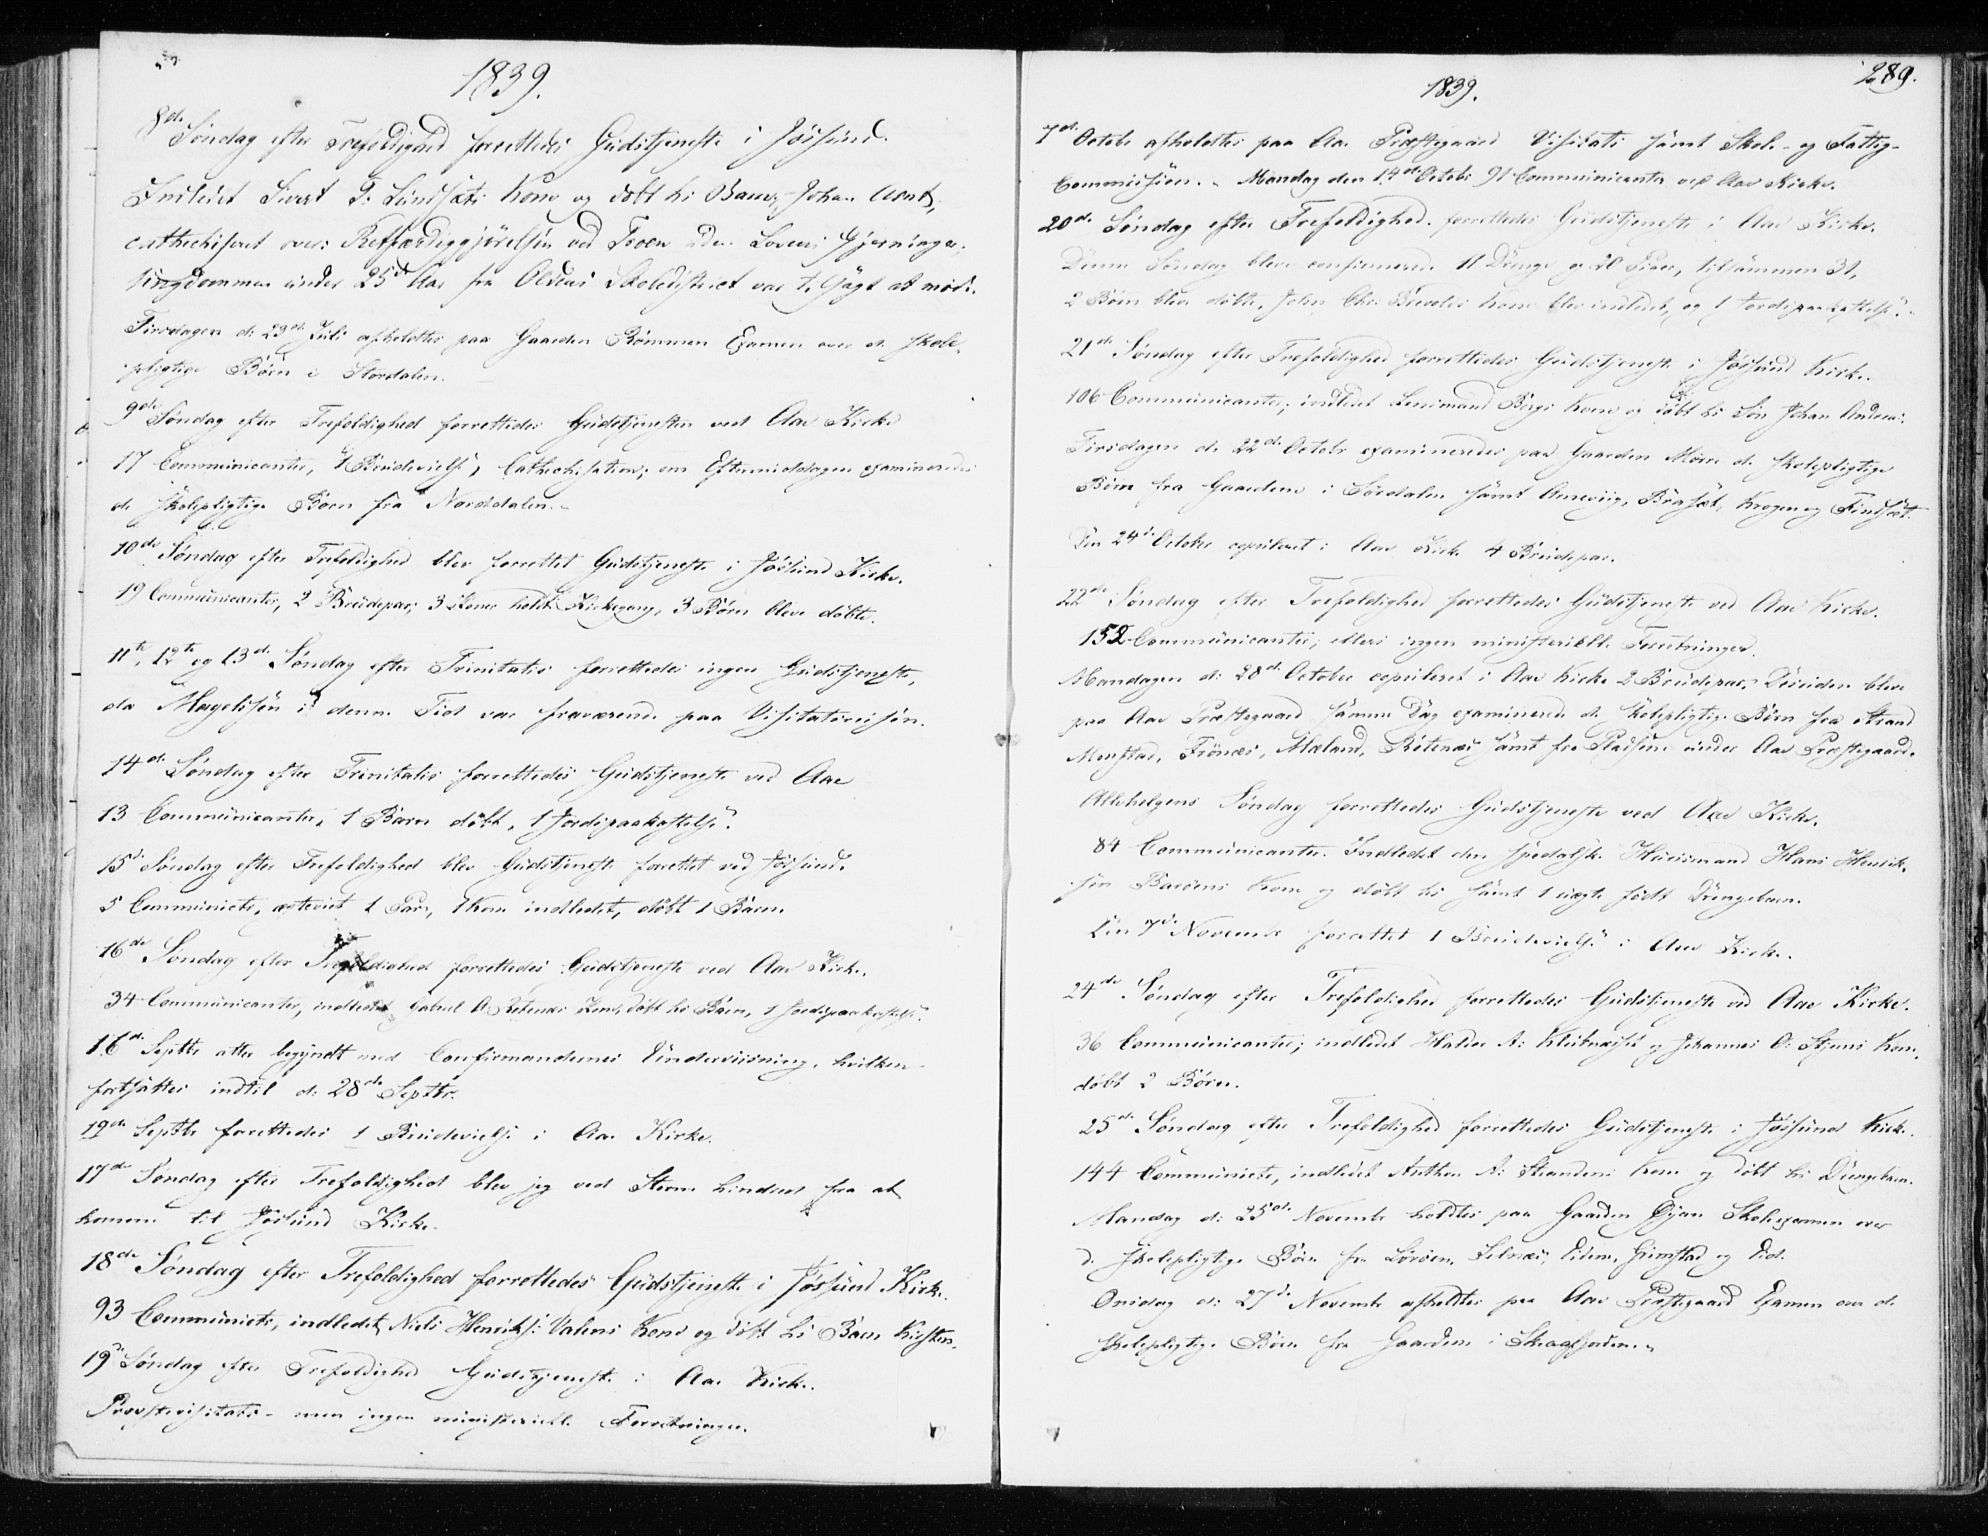 1839.
8de Søndag efter Trefoldighed forrettedes Gudstjeneste i Jøssund.
Indledet Sivert P. Lundsæts Kone og døbt hs Barn Johan Arnt,
cathechiseret over: Retfærdiggjørelsen ved Troen uden Lovens Gjerninger;
Ungdommen under 25de Aar fra Oldens Skoledistrict var tilsagt at møde.
Tirsdagen d: 23de Juli afholdtes paa Gaarden Rømmen Examen over de skole-
pligtige Børn i Stordalen.
9de Søndag efter Trefoldighed forrettedes Gudstjenesten ved Aae Kirke
17 Communicanter, 1 Brudevielse, Cathechisation; om Eftermiddagen examineredes
de skolepligtige Børn fra Norddalen.
10de Søndag efter Trefoldighed blev forrettet Gudstjeneste i Jøssund Kirke.
19 Communicanter, 2 Brudepar; 3 Koner holdt Kirkegang, 3 Børn bleve døbte.
11te, 12te og 13de Søndag efter Trinitatis forrettedes ingen Gudstjeneste,
da Magelssen i denne Tid var fraværende paa Visitatsreisen.
14de Søndag efter Trinitatis forrettedes Gudstjeneste ved Aae
13 Communicanter, 1 Barn døbt, 1 Jordspaakastelse.
15de Søndag efter Trefoldighed blev Gudstjeneste forrettet ved Jøssund.
5 Communicts, ægteviet 1 Par, 1 Kone indledet, døbt 1 Barn.
16de Søndag efter Trefoldighed forrettedes Gudstjeneste ved Aae Kirke.
34 Communicanter, indledet Gabriel A. Retenæs Kone, døbt hs Barn, 1 Jordspaakastelse.
16de Septbr atter begyndt med Confirmandernes Underviisning, hvilken
fortsattes indtil d: 28de Septbr.
19de Septbr forrettedes 1 Brudevielse i Aae Kirke.
17de Søndag efter Trefoldighed blev jeg ved Storm hindret fra at
komme til Jøssund Kirke.
18de Søndag efter Trefoldighed forrettedes Gudstjeneste i Jøssund Kirke.
93 Communicts, indledet Niels Henriks: Valens Kone og døbt hs Barn Kirsten.
19de Søndag efter Trefoldighed Gudstjeneste i Aae Kirke.
Provstevisitats - men ingen ministerielle Forretninger.
1839.
289.
7de Octobr afholdtes paa Aae Præstegaard Visitats samt Skole- og Fattig-
Commission. Mandag den 14de Octobr 91 Communicanter ved Aae Kirke.
20de Søndag efter Trefoldighed forrettedes Gudstjeneste i Aae Kirke.
Denne Søndag bleve confirmerede 11 Drenge og 20 Piger, tilsammen 31,
2 Børn bleve døbte, John Chr: Kone blev indledt, og 1 Jordspaakastelse.
21de Søndag efter Trefoldighed forrettedes Gudstjeneste i Jøssund Kirke.
106 Communicanter; indledt Lensmand Bergs Kone og døbt hs Søn Johan Andreas.
Tirsdagen d: 22de Octobr examineredes paa Gaarden Mørre de skolepligtige
Børn fra Gaardene i Sørdalen samt Arnevig, Bræsæt, Krogen og Findsæt.
Den 24de October copuleret i Aae Kirke 4 Brudepar.
22de Søndag efter Trefoldighed forrettedes Gudstjeneste ved Aae Kirke.
152 Communicanter; ellers ingen ministerielle Forretninger.
Mandagen d: 28de October copuleret i Aae Kirke 2 Brudepar. Desuden bleve
paa Aae Præstegaard samme Dag examinerede de skolepligtige Børn fra Strand
Monstad, Frønæs, Mæland, Retenæs samt fra Pladsene under Aae Præstegaard.
Allehelgens Søndag forrettedes Gudstjeneste ved Aae Kirke.
84 Communicanter. Indledet den spedalske Huusmand Hans Henrik-
sen Barøens Kone og døbt hs samt 1 uægte født Drengebarn.
Den 7de November forrettet 1 Brudevielse i Aae Kirke.
24de Søndag efter Trefoldighed forrettedes Gudstjeneste ved Aae Kirke.
36 Communicanter; indledet Haldor A: og Johannes O: Kone,
døbt 2 Børn.
25de Søndag efter Trefoldighed forrettedes Gudstjeneste i Jøssund Kirke.
144 Communicts, indledet Anthon A: Strandens Kone og døbt hs Drengebarn.
Mandag d: 25de Novembr holdtes paa Gaarden Skoleexamen over
d. skolepligtige Børn fra Selnæs, Grimstad og
Onsdag d: 27de Novembr afholdtes paa Aae Præstegaard Examen over de
skolepligtige Børn fra Gaardene i Skraafjorden.